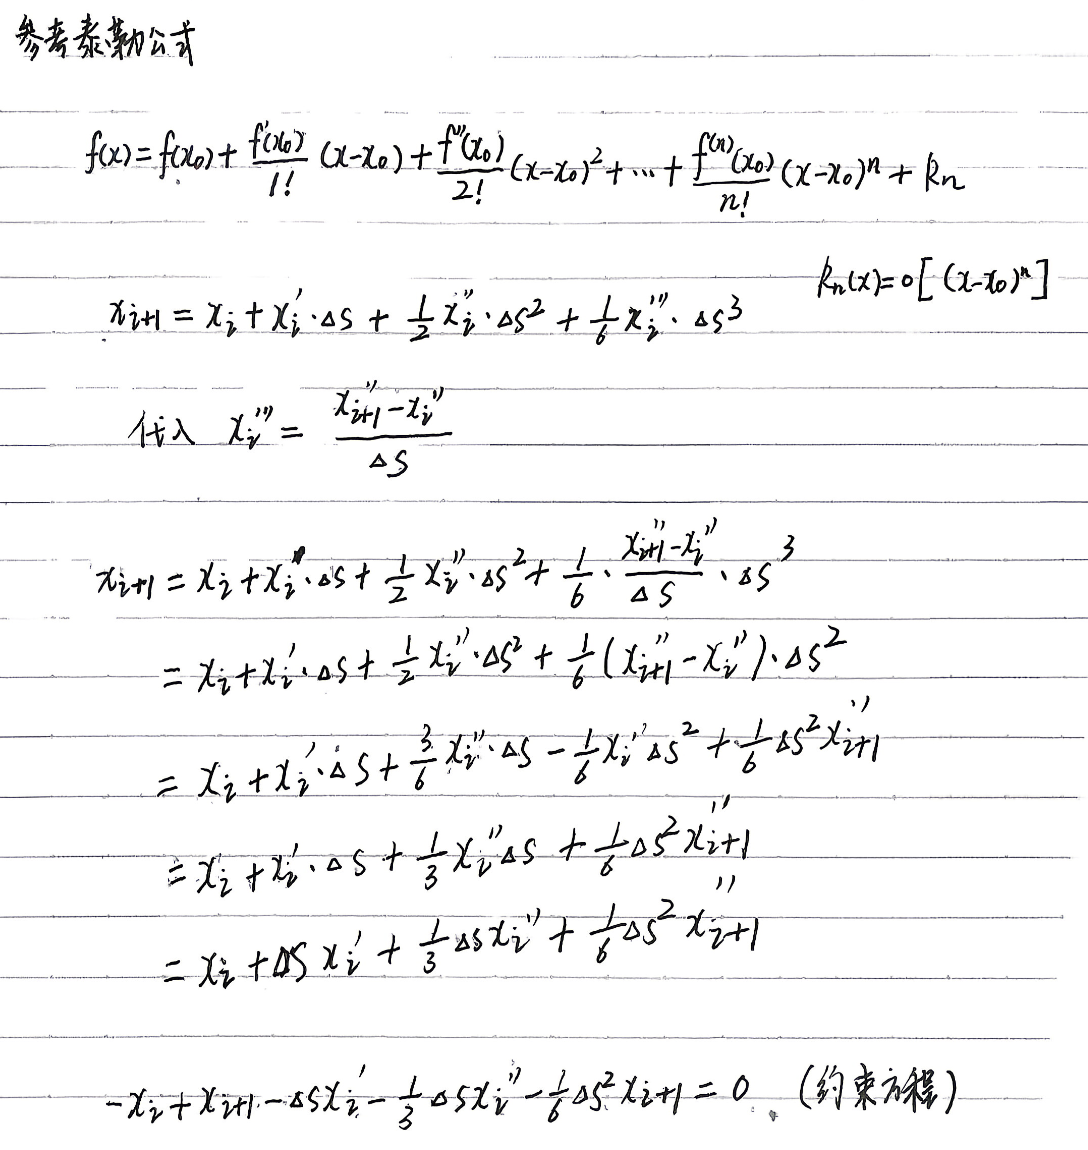 参考泰勒公式
f(x)=f(x₀)+\frac{f'(x₀)}{1!}(x-x₀)+\frac{f''(x₀)}{2!}(x-x₀)²+⋯+\frac{f⁽ⁿ⁾(x₀)}{n!}(x-x₀)ⁿ+Rn
Rn(x)=o[(x-x₀)ⁿ]
x_{i+1}=x_i+x_i'·ΔS+\frac{1}{2}x_i''·ΔS²+\frac{1}{6}x_i'''·ΔS³
代入 x_i'''=\frac{x_{i+1}''-x_i''}{ΔS}
x_{i+1}=x_i+x_i'·ΔS+\frac{1}{2}x_i''·ΔS²+\frac{1}{6}·\frac{x_{i+1}''-x_i''}{ΔS}·ΔS³
=x_i+x_i'·ΔS+\frac{1}{2}x_i''·ΔS²+\frac{1}{6}(x_{i+1}''-x_i'')·ΔS²
=x_i+x_i'·ΔS+\frac{3}{6}x_i''·ΔS-\frac{1}{6}x_i''ΔS²+\frac{1}{6}ΔS²x_{i+1}''
=x_i+x_i'·ΔS+\frac{1}{3}x_i''ΔS+\frac{1}{6}ΔS²x_{i+1}''
=x_i+ΔSx_i'+\frac{1}{3}ΔSx_i''+\frac{1}{6}ΔS²x_{i+1}''
-x_i+x_{i+1}-ΔSx_i'-\frac{1}{3}ΔSx_i''-\frac{1}{6}ΔS²x_{i+1}=0 (约束方程)